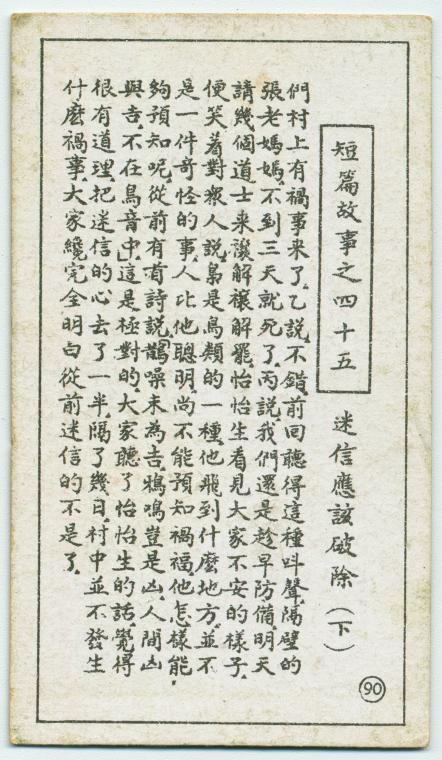 短篇故事之四十五
迷信應該破除（下）
們村上有禍事來了．乙說．不錯．前回聽得這種叫聲．隔壁的
張老媽媽．不到三天就死了．丙說．我們還是趁早防備．明天
請幾個道士來讓解禳解罷．怡怡生看見大家不安的樣子．
便笑着對衆人說．梟是鳥類的一種．他飛到什麽地方．並不
是一件奇怪的事．人比他聰明．尚不能預知禍福．他怎樣能
夠預知呢．從前有首詩說．「鵲噪未為吉．鴉鳴豈是凶．人間凶
與吉．不在鳥音中」這是極對的．大家聽了怡怡生的話．覺得
很有道理．把迷信的心去了一半．隔了幾日．村中並不發生
什麽禍事．大家纔完全明白從前迷信的不是了．
90